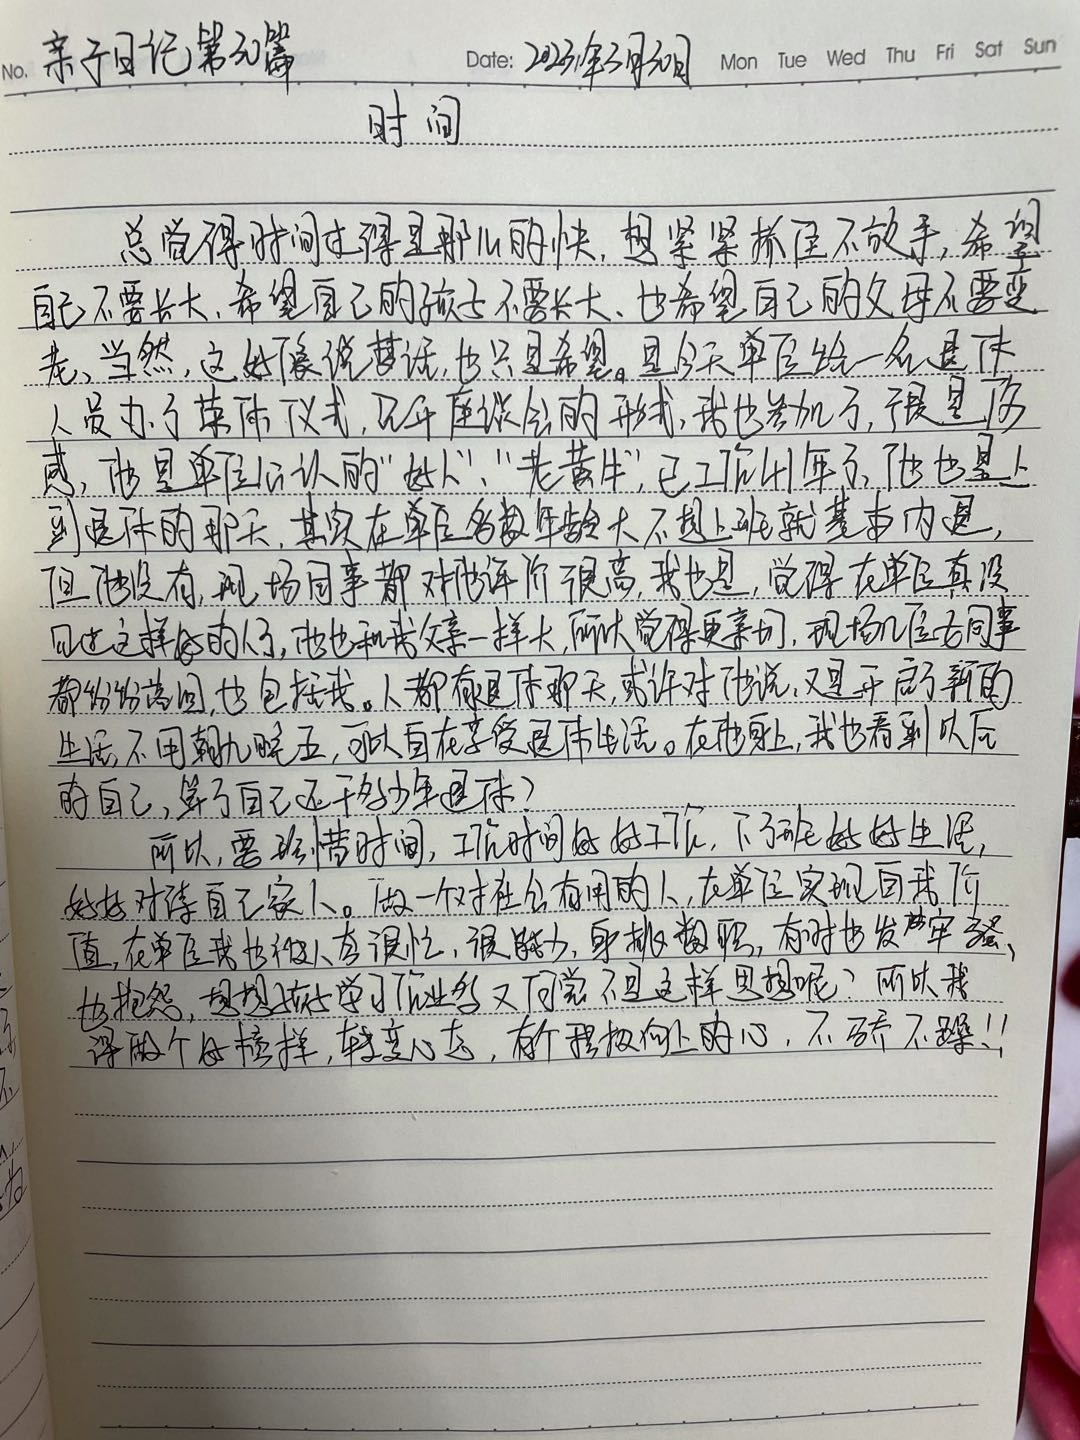 No. 亲子日记第30篇 Date: 2023年3月30日 Mon Tue Wed Thu Fri Sat Sun
时间
总觉得时间过得是那么的快，想紧紧抓住不放手，希望
自己不要长大、希望自己的孩子不要长大、也希望自己的父母不要变
老、当然，这好像说梦话，也只是希望。是今天单位给一名退休
人员办了荣休仪式，召开座谈会的形式，我也参加了，于是有
感，他是单位公认的“好人”、“老黄牛”，已工作41年了，他也是上
到退休的那天，其实在单位多数年龄大不想上班就基本内退，
但他没有，现场同事都对他评价很高，我也是，觉得在单位真没
见过这样好的人了，他也和我父亲一样大，所以觉得更亲切，现场几位女同事
都纷纷落泪，也包括我。人都有退休那天，或许对他说，又是开启了新的
生活不用朝九晚五，可以自在享受退休生活。在他身上，我也看到以后
的自己，算了自己还干多少年退休？
所以，要珍惜时间，工作时间好好工作，下了班好好生活，
好好对待自己家人。做一个对社会有用的人，在单位实现自我价
值，在单位我也被人夸很忙，很能力，身挑数职，有时也发牢骚、
也抱怨，想想孩子学习作业多又何尝不是这样思想呢？所以我
得做个好榜样，转变心态，有个积极向上的心，不骄不躁！！